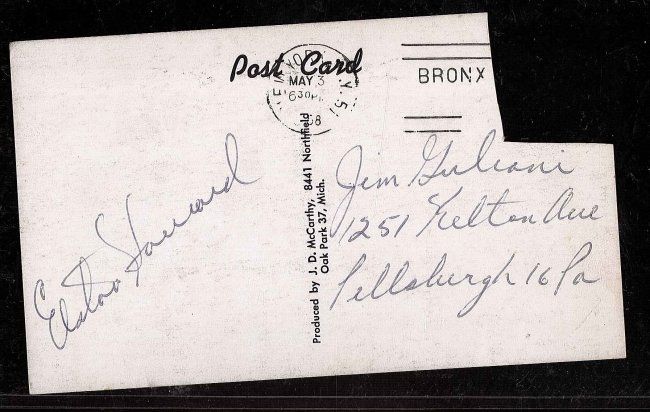 Post Card
NEW YORK, N.Y. 51
MAY 3
630PM
BRONX
Elston Howard
Produced by J. D. McCarthy, 8441 Northfield
Oak Park 37, Mich.
Jim Guliani
1251 Kelton Ave
Pittsburgh 16 Pa